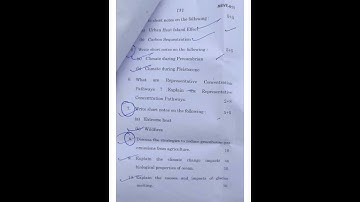 (3)
short notes on the following : 5+5
(a) Urban Heat Island Effect
(b) Carbon Sequestration
Write short notes on the following : 5+5
(a) Climate during Precambrian
(b) Climate during Pleistocene
6. What are Representative Concentration
Pathways ? Explain the Representative
Concentration Pathways.
7. Write short notes on the following : 5+5
(a) Extreme heat
(b) Wildfires
8. Discuss the strategies to reduce greenhouse gas
emissions from agriculture. 10
9. Explain the climate change impacts on
biological properties of ocean. 10
10. Explain the causes and impacts of glacier
melting. 10